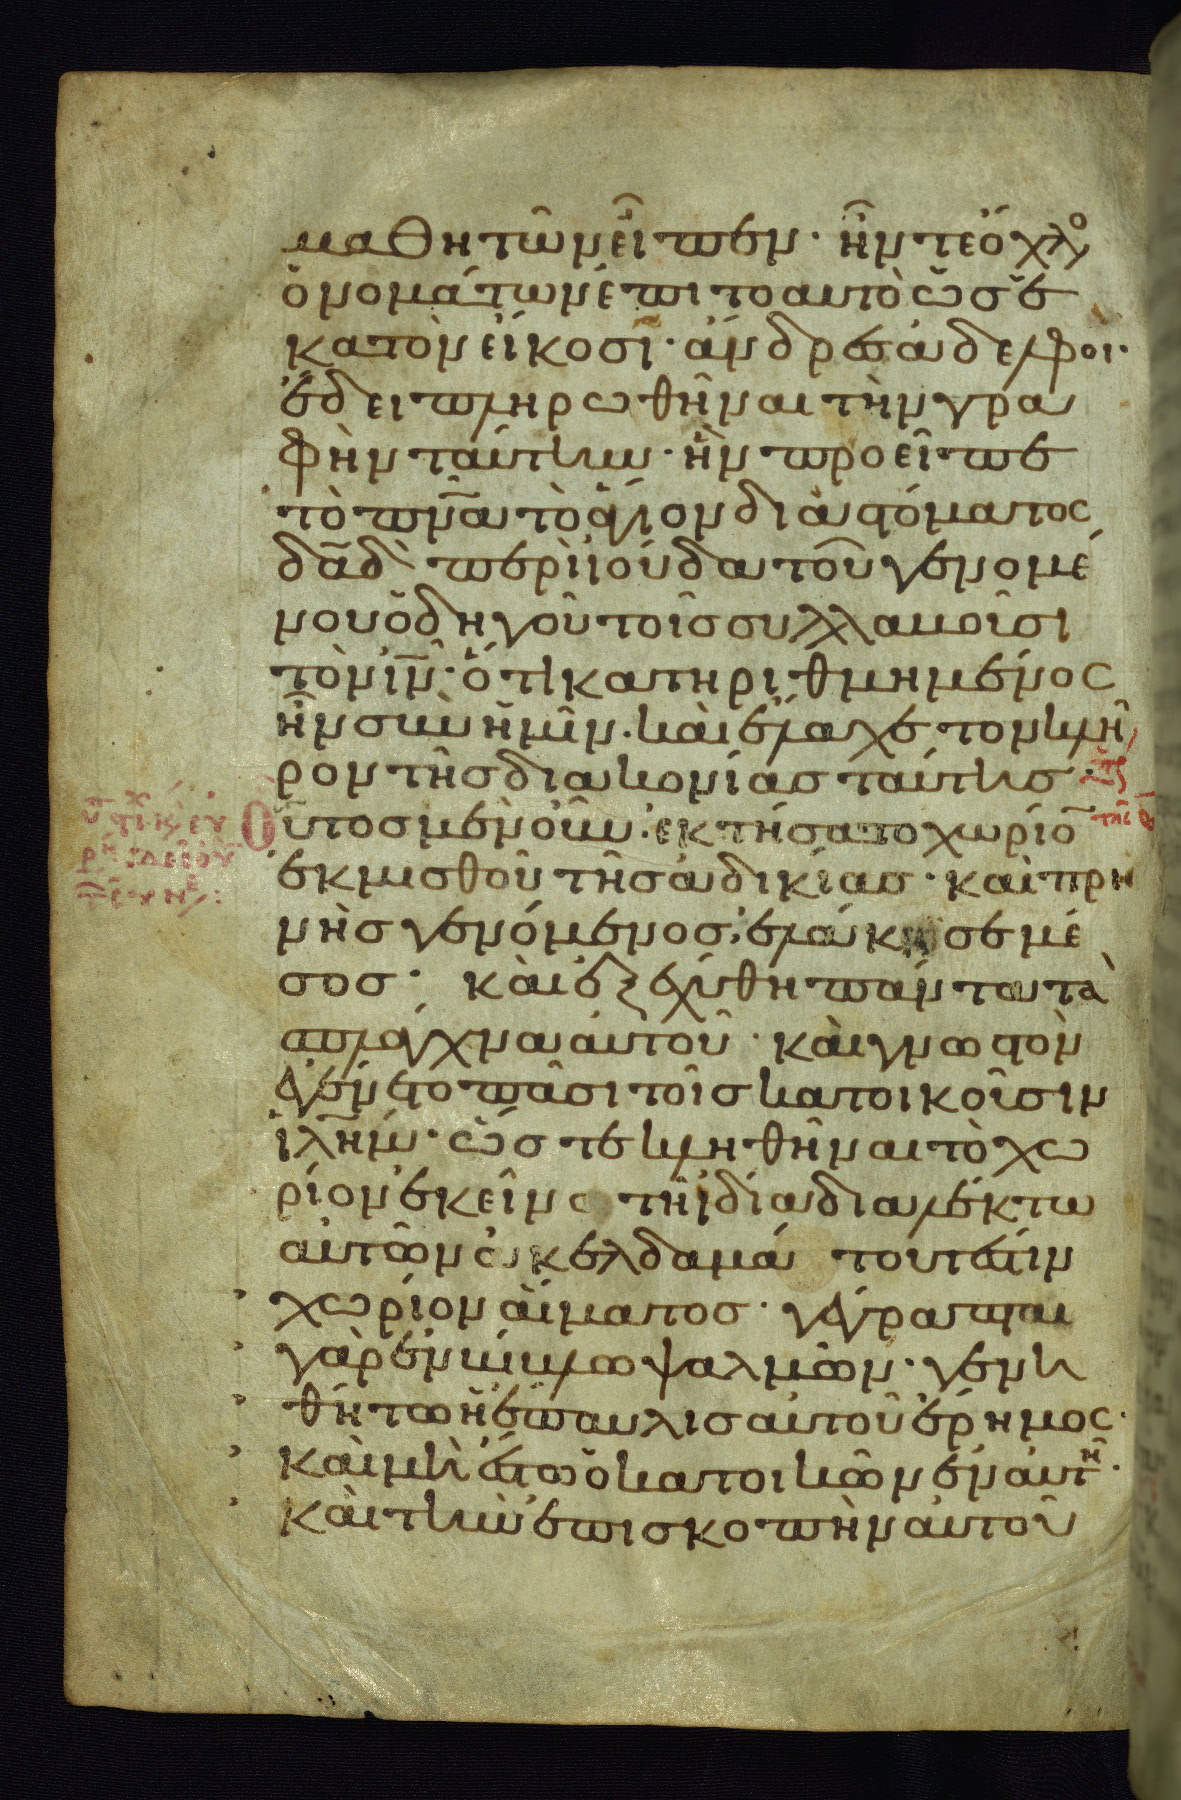 μαθητῶν εἶπεν· ἦν τε ὄχλο
ὀνομάτων ἐπιτοαυτὸ ὡσ ἑ
κατὸν εἴκοσι· ἄνδρεσ ἀδελφοι·
ἔδει πληρωθῆναι τὴν γρα
φὴν ταύτην· ἣν προεῖπε
τὸ πν̅α τὸ ἅγιον διὰ στόματος
δα̅δ̀ περὶ ἰούδα τοῦ γενομέ
νου ὁδηγοῦ τοῖσ συλλαβοῦσι
τὸν ι̅ν̅· ὅτι κατηριθμημένος
ἦν σὺν ἡμῖν· καὶ ἔλαχε τον κλῆ
ρον τῆσ διακονίασ ταύτησ·
Οὗτοσ μὲν οὖν ἐκτήσατο χωρίο̅
ἐκ μισθοῦ τῆσ ἀδικίασ· καὶ πρη
νὴσ γενόμενοσ, ἐλάκησε μέ
σοσ· καὶ ἐξεχύθη πάντα τὰ
σπλάγχνα αὐτοῦ· καὶ γνωστὸν
ἐγένετο πᾶσι τοῖσ κατοικοῦσιν
ἱλ̅ημ· ὥστε κληθῆναι τὸ χω
ρίον ἐκεῖνο τῆ ἰδία διαλέκτω
αὐτῶν ἀκελδαμά τουτέστιν
χωρίον αἵματοσ· γέγραπται
γὰρ ἐν βίβλω ψαλμῶν· γενη
θήτω ἡ ἔπαυλισ αὐτοῦ ἔρημος·
καὶ μὴ ἔστω ὁ κατοικῶν ἐν αὐτῆ·
καὶ τὴν ἐπισκοπὴν αὐτοῦ